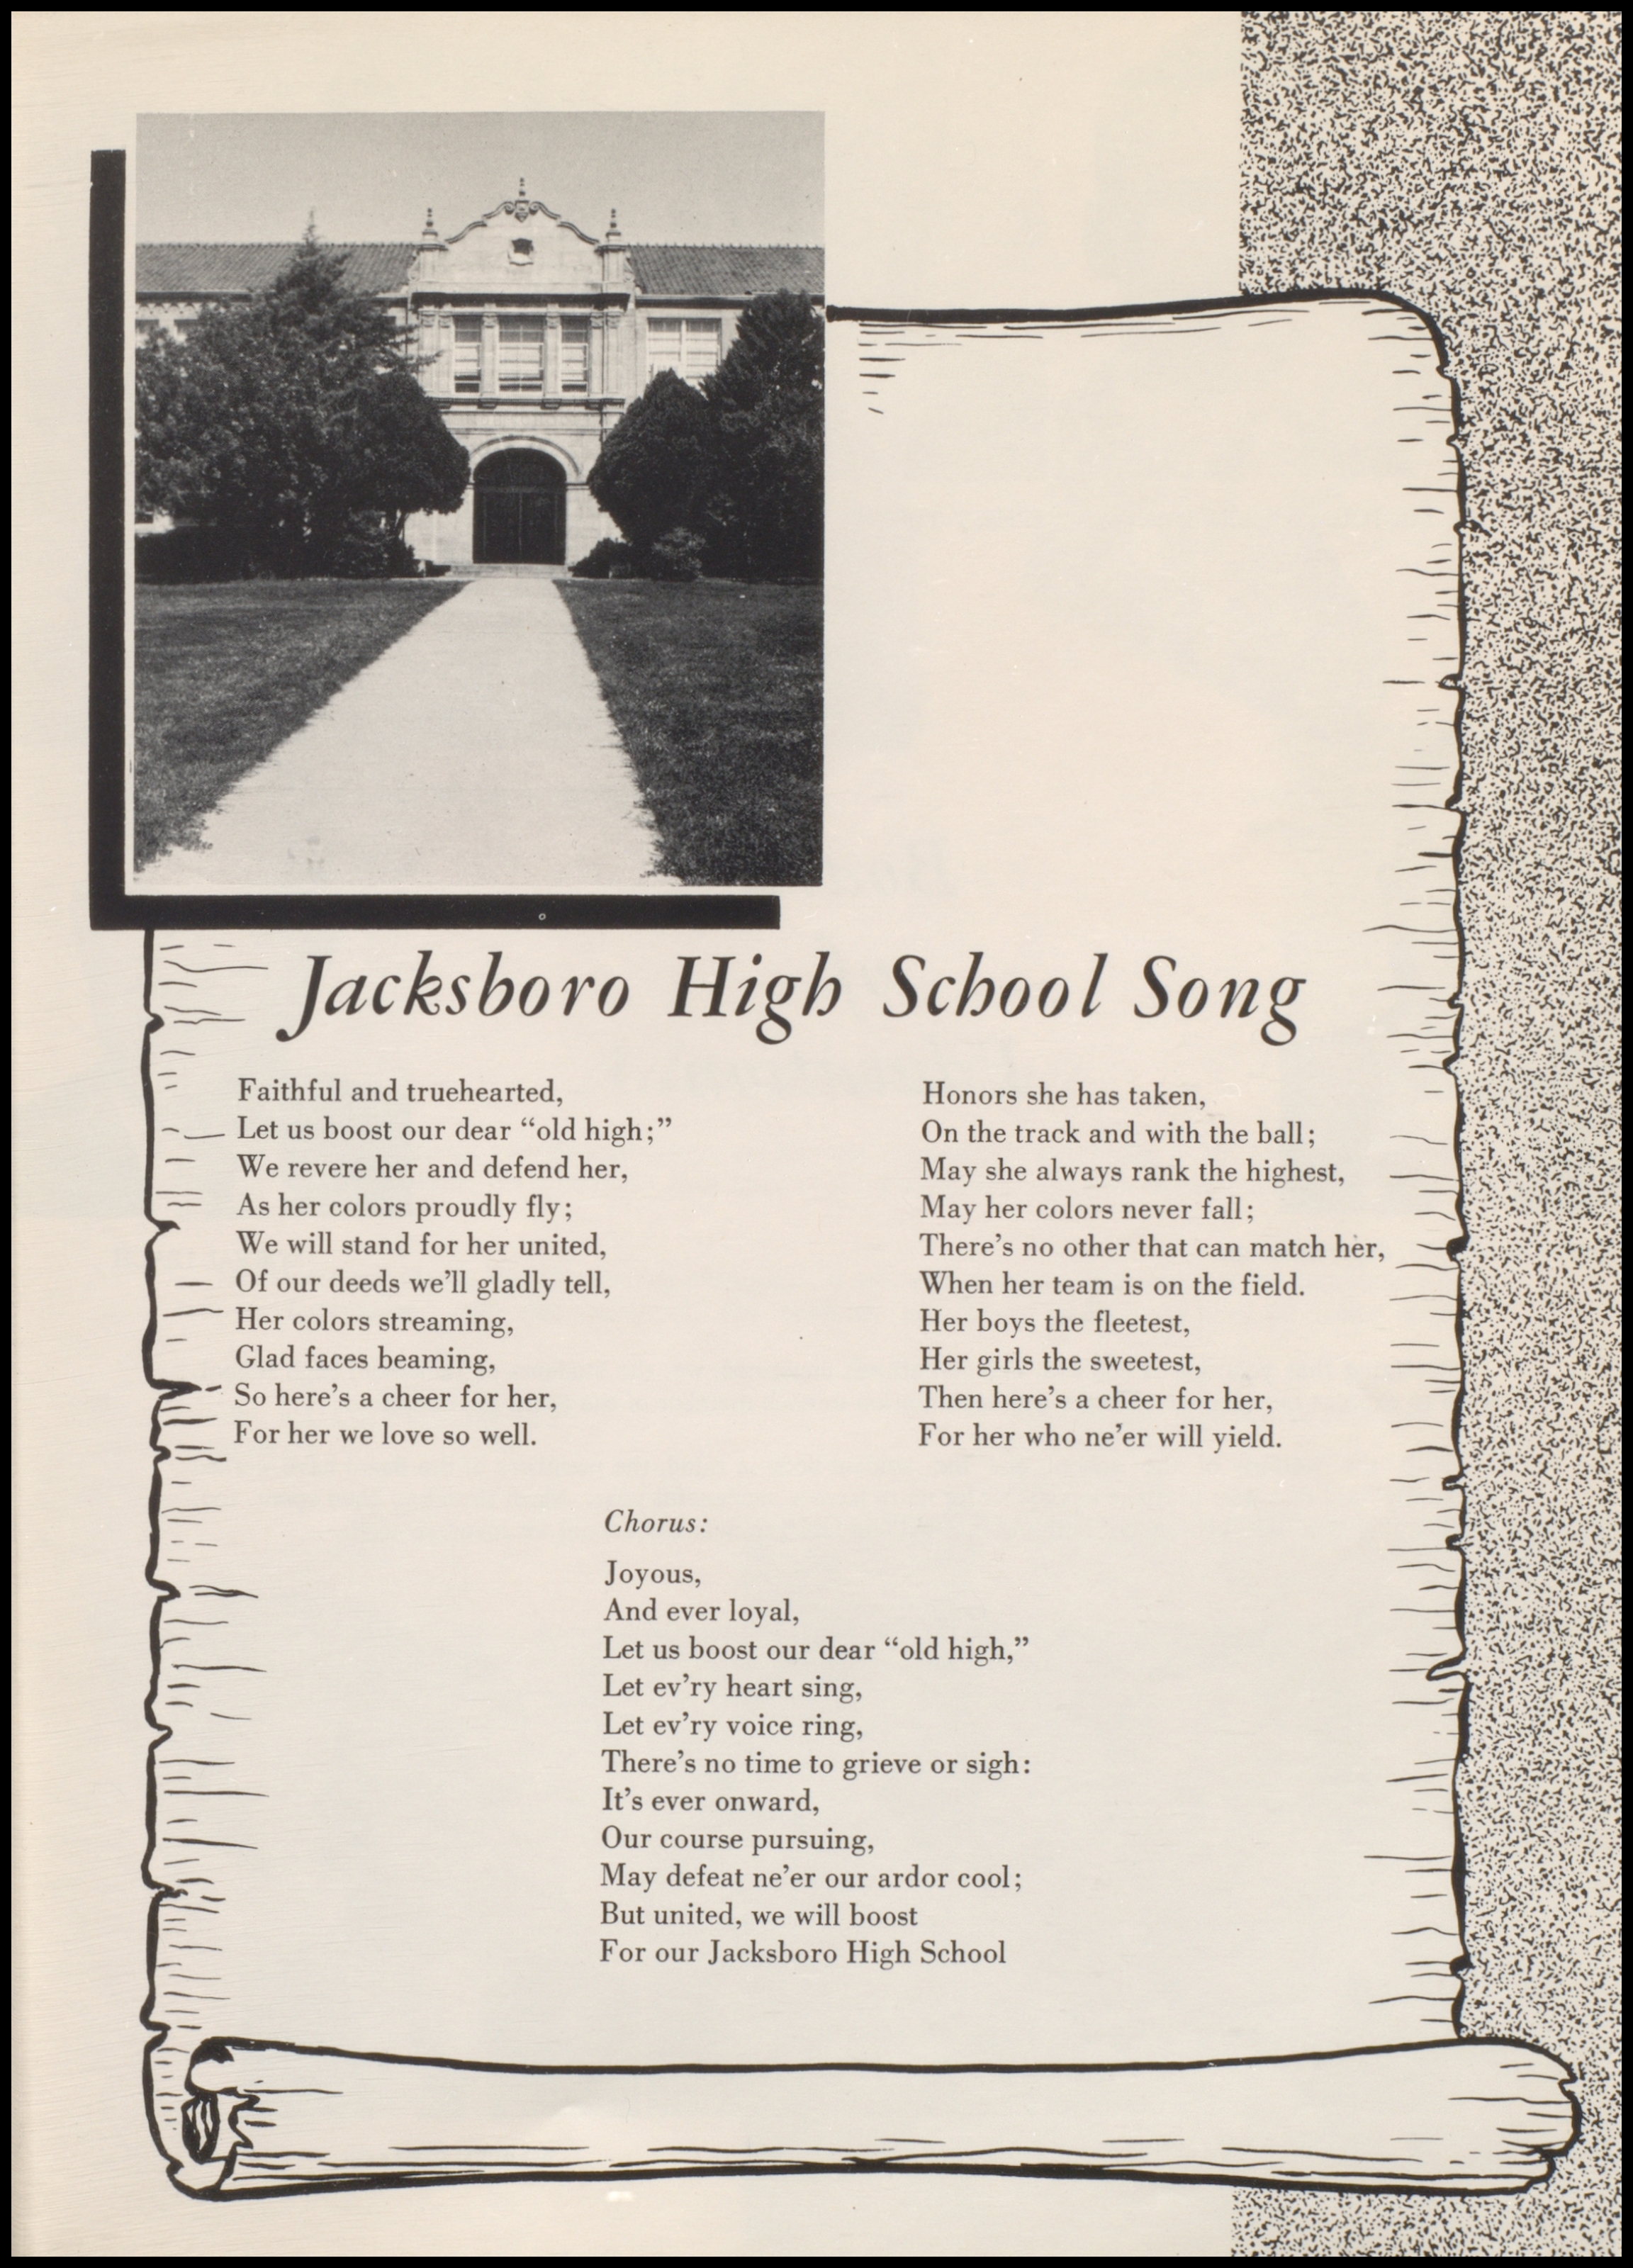 Jacksboro High School Song
Faithful and truehearted,
Let us boost our dear “old high;”
We revere her and defend her,
As her colors proudly fly;
We will stand for her united,
Of our deeds we’ll gladly tell,
Her colors streaming,
Glad faces beaming,
So here’s a cheer for her,
For her we love so well.
Honors she has taken,
On the track and with the ball;
May she always rank the highest,
May her colors never fall;
There’s no other that can match her,
When her team is on the field.
Her boys the fleetest,
Her girls the sweetest,
Then here’s a cheer for her,
For her who ne’er will yield.
Chorus:
Joyous,
And ever loyal,
Let us boost our dear “old high,”
Let ev’ry heart sing,
Let ev’ry voice ring,
There’s no time to grieve or sigh:
It’s ever onward,
Our course pursuing,
May defeat ne’er our ardor cool;
But united, we will boost
For our Jacksboro High School